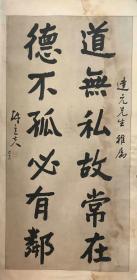 達元先生雅屬
道無私故常在
德不孤必有鄰